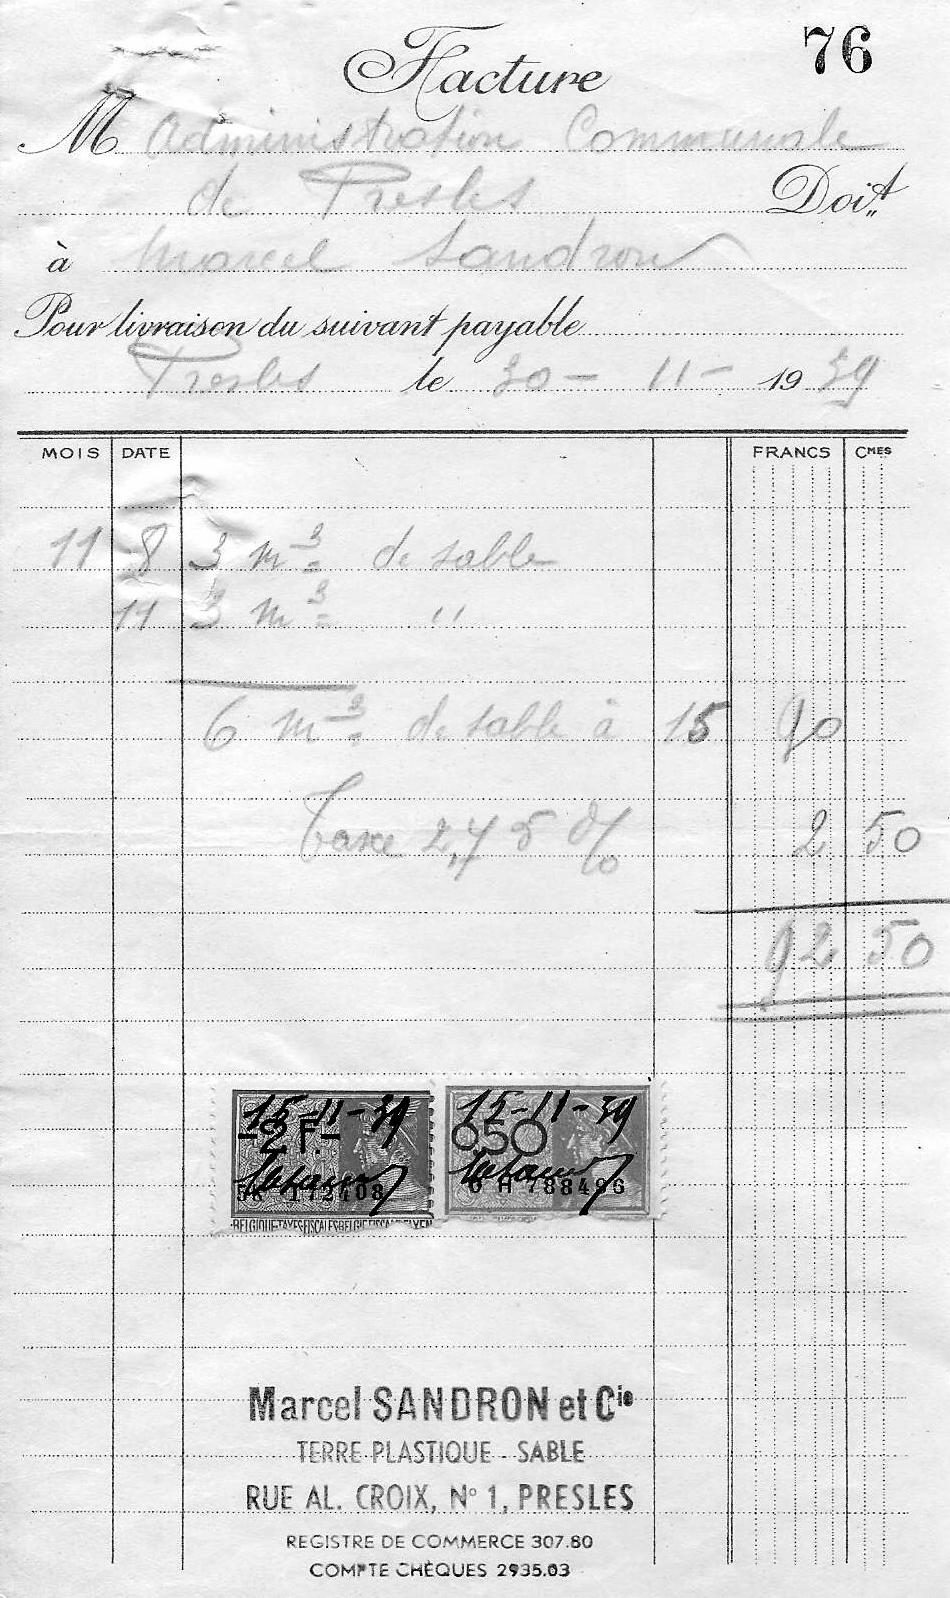 76
Facture
M Administration Communale
de Presles Doit
à Marcel Sandron
Pour livraison du suivant payable
Presles le 30 - 11 - 1939
MOIS DATE FRANCS Cmes
11 8 3 m3 de sable
11 3 m3 "
6 m3 de sable à 15 90
Taxe 2,75 % 2 50
92 50
15-11-39 15-11-39
-2 F.- 0,50
172408 788496
BELGIQUE-TAXES FISCALES
Marcel SANDRON et Cie
TERRE PLASTIQUE - SABLE
RUE AL. CROIX, No 1, PRESLES
REGISTRE DE COMMERCE 307.80
COMPTE CHÈQUES 2935.03